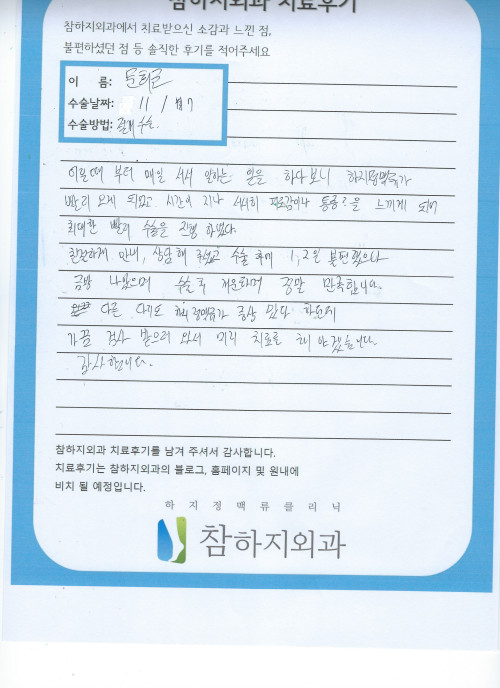 참하지외과 치료후기
참하지외과에서 치료받으신 소감과 느낀 점,
불편하셨던 점 등 솔직한 후기를 적어주세요
이 름:
수술날짜: 11 /
수술방법: 절개 수술.
이럴때 부터 매일 서서 일하는 일을 하다보니 하지정맥류가
빨리 오게 되었고 시간이 지나 서서히 피로감이나 통증을 느끼게 되어
최대한 빨리 수술을 진행 하였다.
친절하게 안내, 상담해 주셨고 수술 후에 1, 2일 불편했으나
금방 나았으며 수술 후 가운하며 정말 만족합니다.
다른 다리도 하지정맥류가 증상 있다 하는데
가끔 검사 받으러 와서 미리 치료를 해야겠습니다.
감사합니다.
참하지외과 치료후기를 남겨 주셔서 감사합니다.
치료후기는 참하지외과의 블로그, 홈페이지 및 원내에
비치 될 예정입니다.
하지정맥류클리닉
참하지외과